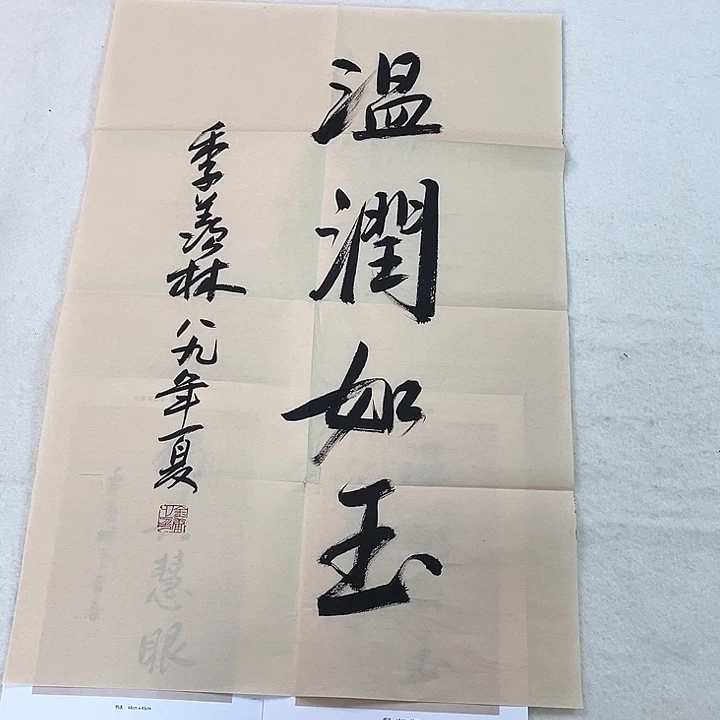 温潤如玉
季羡林 八九年夏
慧眼